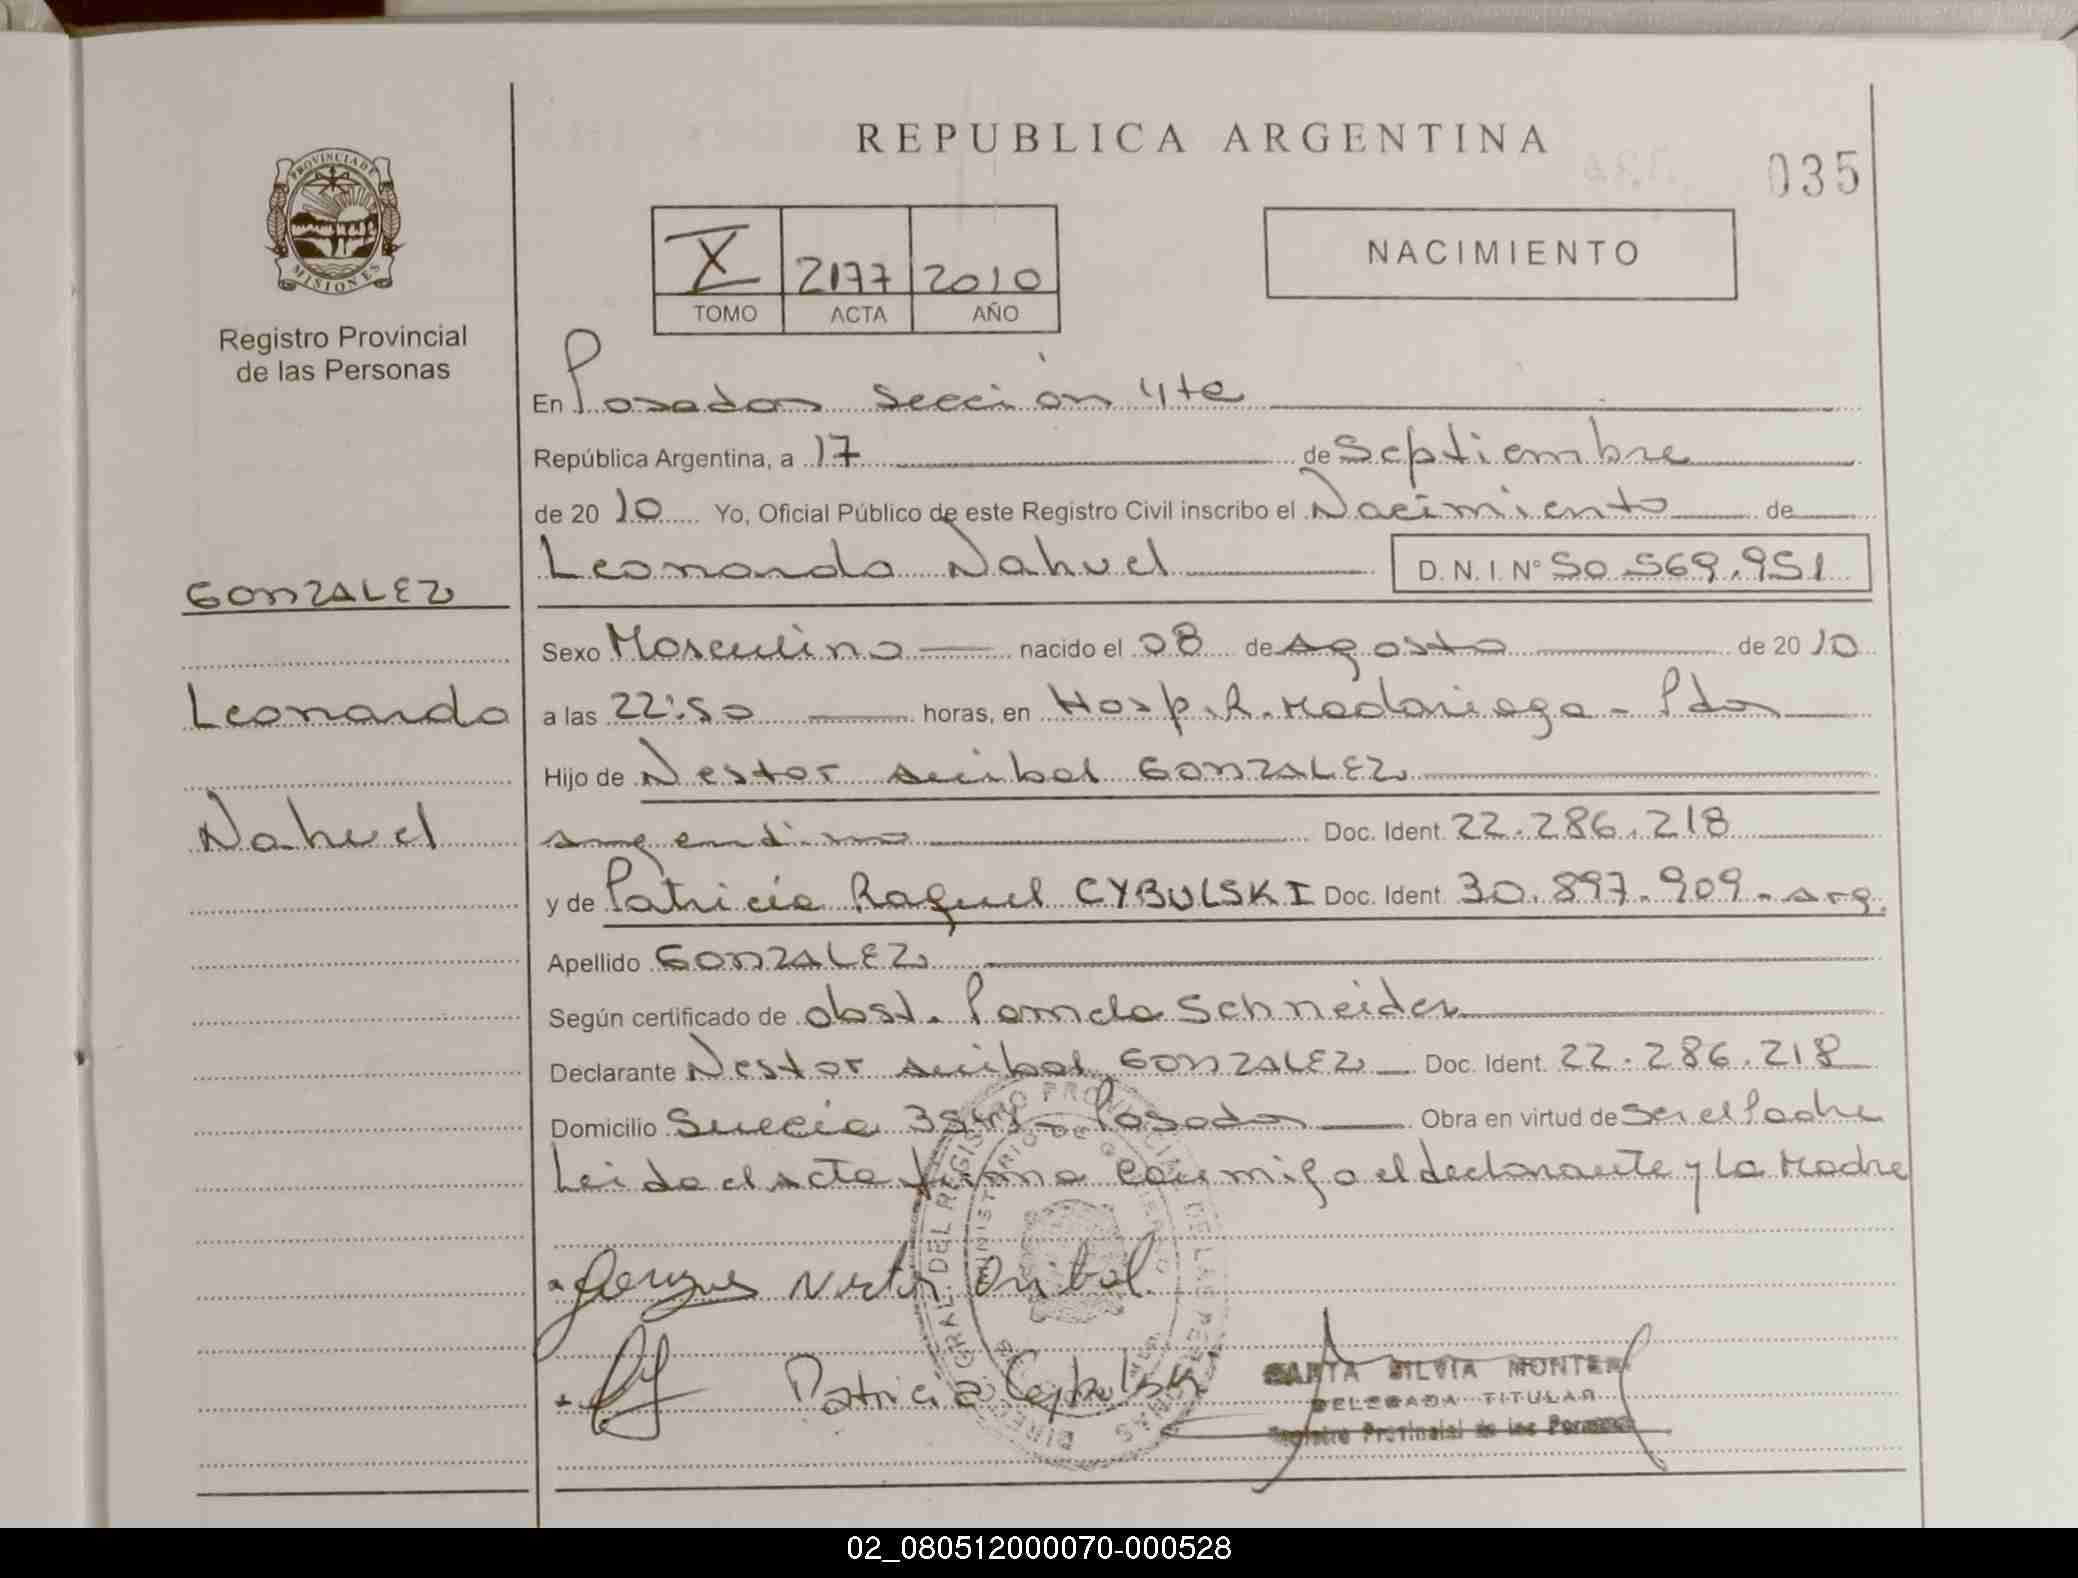 REPUBLICA ARGENTINA
035
PROVINCIA DE
MISIONES
Registro Provincial
de las Personas
X 2177 2010
TOMO ACTA AÑO
NACIMIENTO
En Posadas sección 4ta
República Argentina, a 17 de Septiembre
de 2010 Yo, Oficial Público de este Registro Civil inscribo el Nacimiento de
Leonardo Nahuel D. N. I. N° 50.569.951
GONZALEZ
Leonardo
Nahuel
Sexo Masculino nacido el 08 de Agosto de 2010
a las 22:50 horas, en Hosp. R. Madariaga - Pdas
Hijo de Nestor Anibal GONZALEZ
argentino Doc. Ident. 22.286.218
y de Patricia Raquel CYBULSKI Doc. Ident. 30.897.909 - arg.
Apellido GONZALEZ
Según certificado de obst. Pamela Schneider
Declarante Nestor Anibal GONZALEZ Doc. Ident. 22.286.218
Domicilio Suecia Posadas Obra en virtud de ser el Padre
Leida el acta firma conmigo el declarante y La Madre
Nestor Anibal
Patricia Cybulski
SILVIA MONTER
DELEGADA TITULAR
Registro Provincial de las Personas
02_080512000070-000528